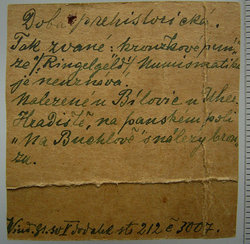 Doba prehistorická.
Tak zvané: kroužkové peníze
/Ringelgeld/ Numismatika
je neuznává.
Nalezené u Bílovic u Uher.
Hradiště, na panském poli
„Na Buchlově" s nálezy bronzu.
dodatek str. 212 č 3007.